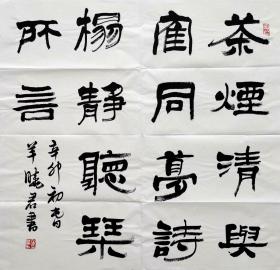 茶煙清與
隺同夢詩
榻靜聽琹
所言
辛卯初春
羊曉君書